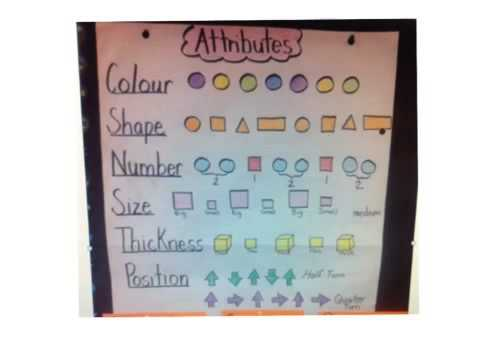 Attributes
Colour
Shape
Number
2 1 2 1 2
Size
Big Small Big Small Big Small medium
Thickness
Position
Half Turn
Quarter Turn